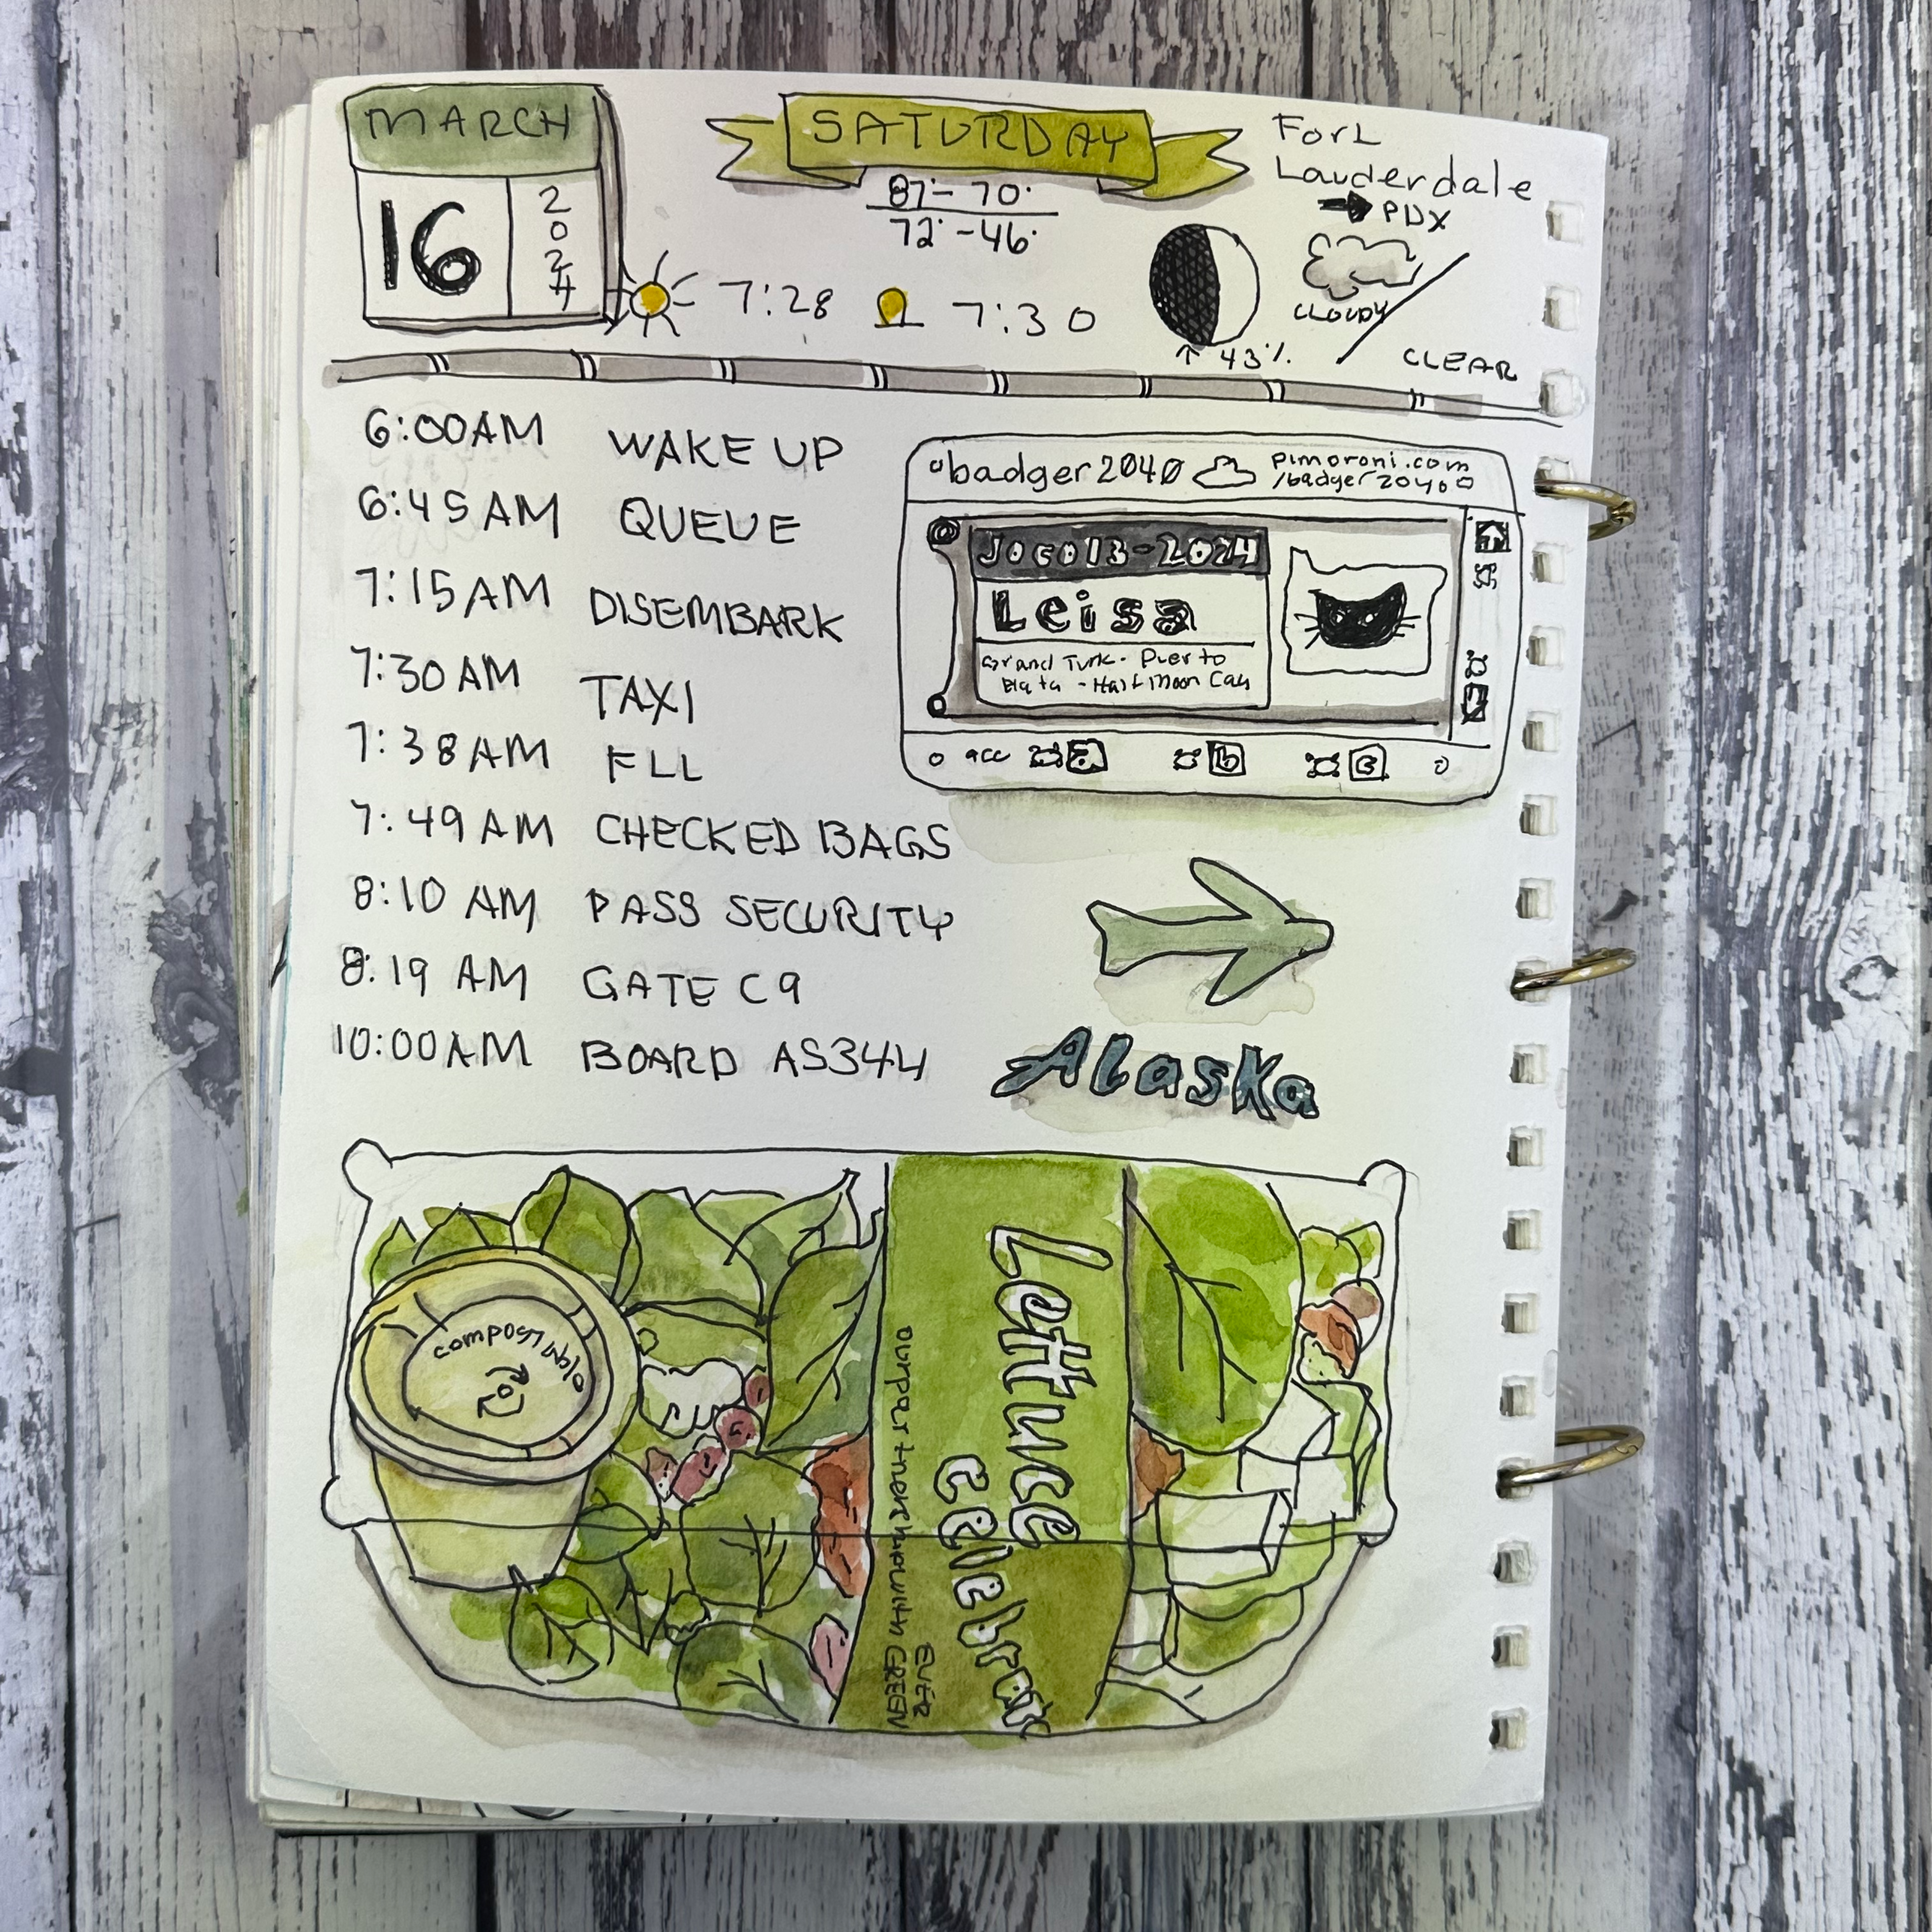 MARCH
16
2024
SATURDAY
87°- 70°
72° - 46°
7:28
7:30
43%
ForL
Lauderdale
→ PDX
CLOUDY
CLEAR
6:00AM WAKE UP
6:45 AM QUEUE
7:15 AM DISEMBARK
7:30 AM TAXI
7:38 AM FLL
7:49 AM CHECKED BAGS
8:10 AM PASS SECURITY
8:19 AM GATE C9
10:00 AM BOARD AS344
badger2040
pimoroni.com
/badger2040
Joco13-2024
Leisa
Grand Turk - Puerto
Plata - Half Moon Cay
acc a b c
Alaska
compostable
Lettuce
Celebrate
our partnership with GREEN
EVER